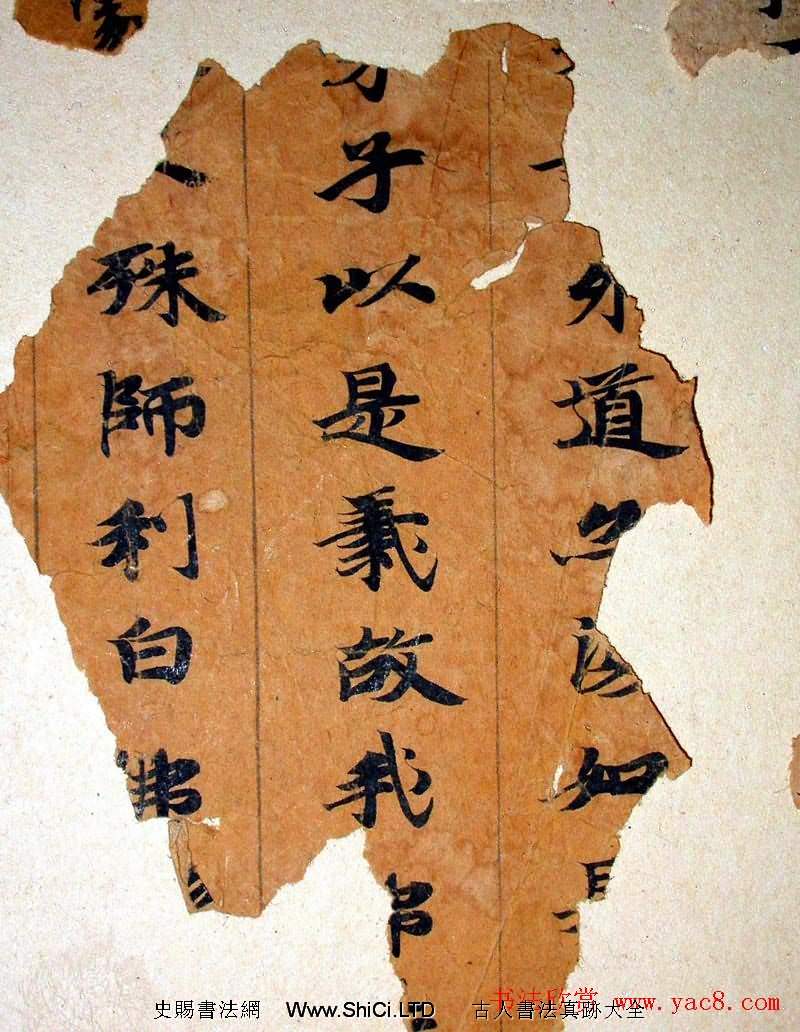 外道如是
子以是義故我
殊師利白佛
书法欣赏 www.yac8.com
史賜書法網 Www.ShiCi.LTD 古人書法真跡大全